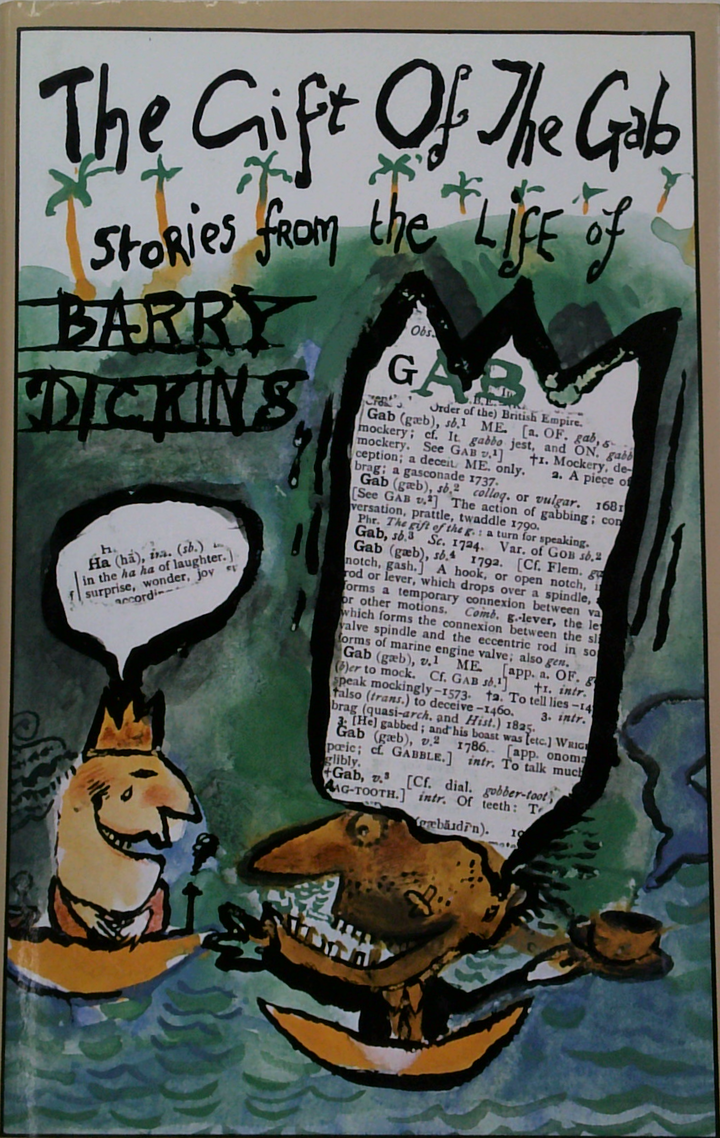 The Gift Of The Gab
Stories from the LifE of
BARRY
DICKINS
Obs.
GAB
Order of the) British Empire.
Gab (gæb), sb.1 ME. [a. OF. gab, g-
mockery; cf. It. gabbo jest, and ON. gabb
mockery. See GAB v.1] †1. Mockery, de-
ception; a deceit. ME. only. 2. A piece of
brag; a gasconade 1737.
Gab (gæb), sb.2 colloq. or vulgar. 1681
[See GAB v.2] The action of gabbing; con
versation, prattle, twaddle 1790.
Phr. The gift of the g.: a turn for speaking.
Gab, sb.3 Sc. 1724. Var. of GOB sb.2
Gab (gæb), sb.4 1792. [Cf. Flem. g
notch, gash.] A hook, or open notch, i
rod or lever, which drops over a spindle,
forms a temporary connexion between va
or other motions. Comb. g.-lever, the le
which forms the connexion between the sl
valve spindle and the eccentric rod in so
forms of marine engine valve; also gen.
Gab (gæb), v.1 ME. [app. a. OF. g
(b)er to mock. Cf. GAB sb.1] †1. intr.
speak mockingly–1573. †2. To tell lies–14
†also (trans.) to deceive–1460. 3. intr.
brag (quasi-arch. and Hist.) 1825.
3. [He] gabbed; and his boast was [etc.] WRIG
Gab (gæb), v.2 1786. [app. onoma
pœic; cf. GABBLE.] intr. To talk much
glibly.
†Gab, v.3 [Cf. dial. gobber-toot,
AG-TOOTH.] intr. Of teeth: T
Ha (hā), int. (sb.)
in the ha ha of laughter.
surprise, wonder, joy
accordin